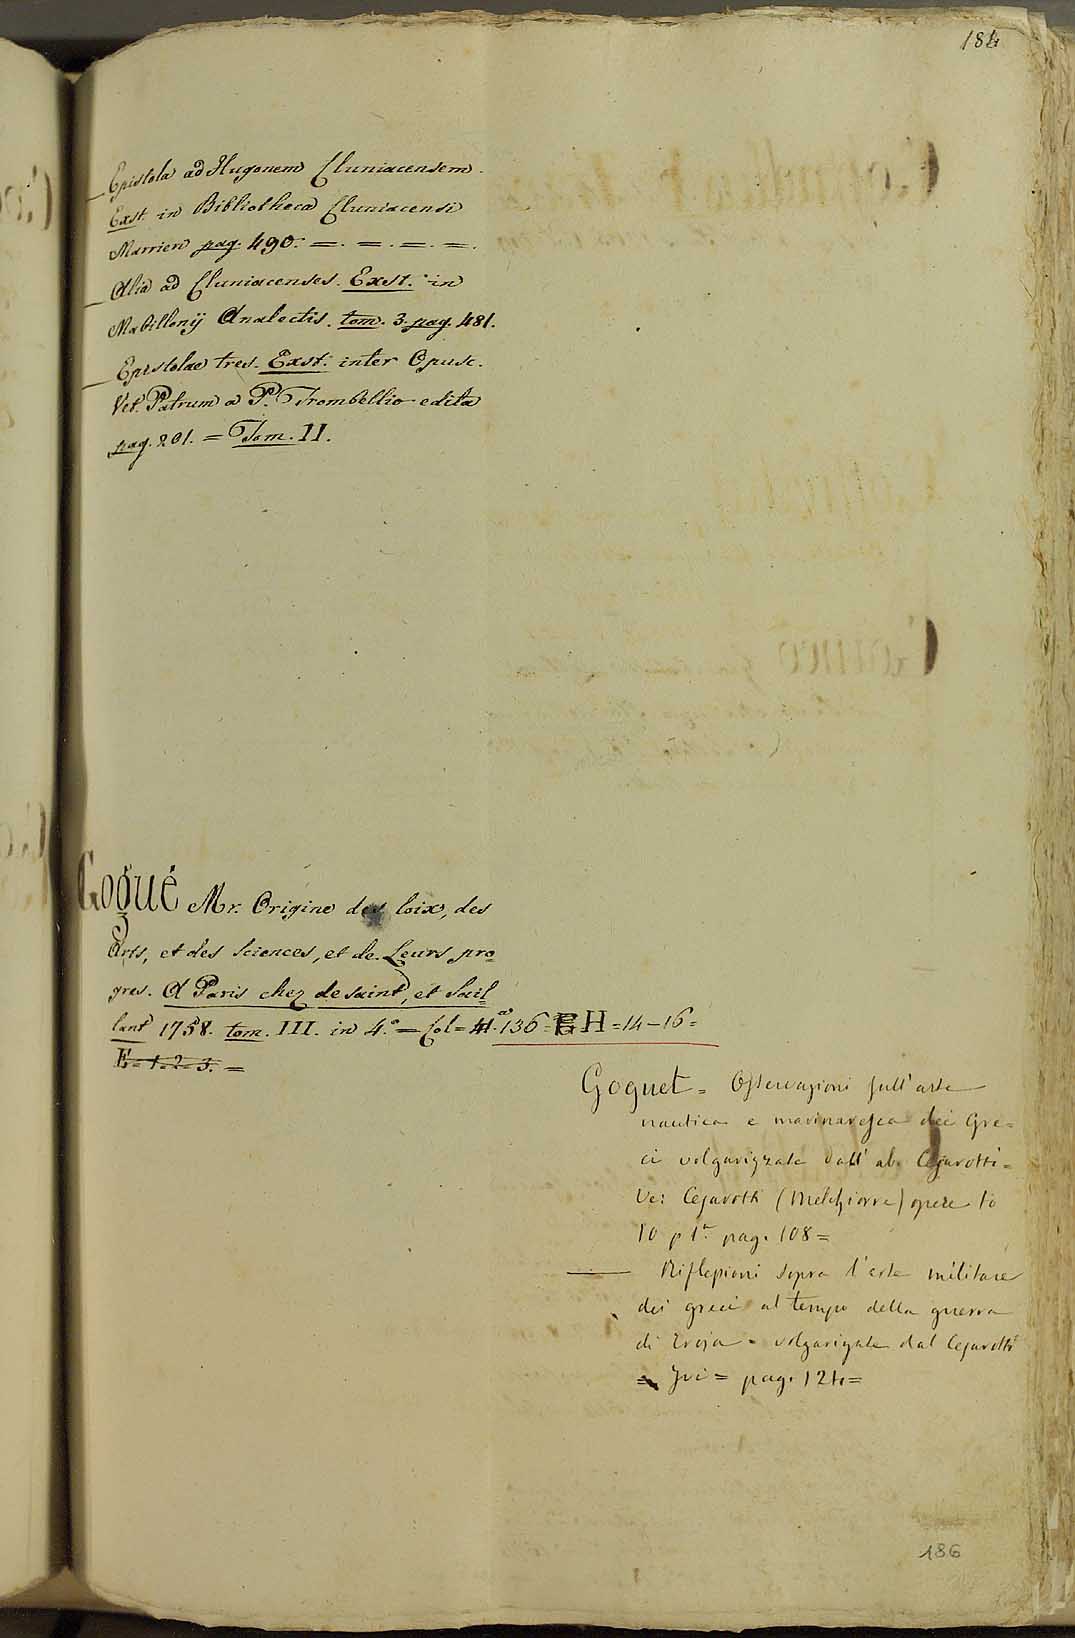 184
Epistola ad Hugonem Cluniacensem.
Exst. in Bibliotheca Cluniacensi
Marrien pag. 490. =. =. =. =.
Alia ad Cluniacenses. Exst. in
Mabillonij Analectis. tom. 3. pag. 481.
Epistolae tres. Exst. inter Opusc.
Vet. Patrum a P. Trombellio edita
pag. 201. = Tom. II.
Gogué Mr. Origine des loix, des
Arts, et des Sciences, et de Leurs pro=
gres. A Paris chez de saint, et Sail=
lant 1758. tom. III. in 4.º = Col = 136 = H = 14 – 16 =
E = 1. 2. 3. =
Goguet = Osservazioni sull'arte
nautica e marinaresca dei Gre=
ci volgarizzate dall' ab. Cesarotti =
Ve: Cesarotti (Melchiorre) opere to
10 p 1.ª pag. 108 =
— Riflessioni sopra l'arte militare
dei greci al tempo della guerra
di Troja = volgarizzate dal Cesarotti
= Ivi = pag. 124 =
186